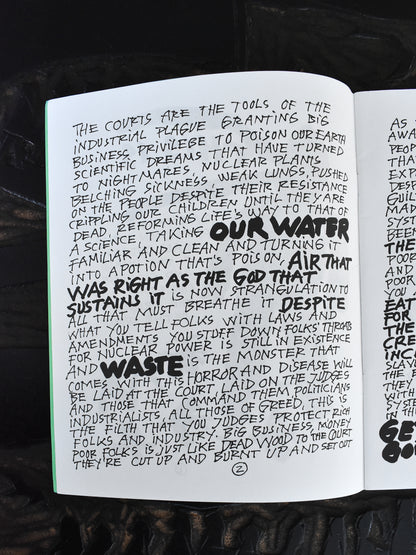 THE COURTS ARE THE TOOLS OF THE
INDUSTRIAL PLAGUE GRANTING BIG
BUSINESS PRIVILEGE TO POISON OUR EARTH
SCIENTIFIC DREAMS THAT HAVE TURNED
TO NIGHTMARES, NUCLEAR PLANTS
BELCHING SICKNESS, WEAK LUNGS, PUSHED
ON THE PEOPLE DESPITE THEIR RESISTANCE
CRIPPLING OUR CHILDREN UNTIL THEY ARE
DEAD, REFORMING LIFE'S WAY TO THAT OF
A SCIENCE, TAKING OUR WATER
FAMILIAR AND CLEAN AND TURNING IT
INTO A POTION THAT'S POISON, AIR THAT
WAS RIGHT AS THE GOD THAT
SUSTAINS IT IS NOW STRANGULATION TO
ALL THAT MUST BREATHE IT DESPITE
WHAT YOU TELL FOLKS WITH LAWS AND
AMENDMENTS YOU STUFF DOWN FOLKS' THROATS
FOR NUCLEAR POWER IS STILL IN EXISTENCE
AND WASTE IS THE MONSTER THAT
COMES WITH THIS HORROR AND DISEASE WILL
BE LAID AT THE COURT, LAID ON THE JUDGES
AND THOSE THAT COMMAND THEM, POLITICIANS
INDUSTRIALISTS, ALL THOSE OF GREED, THIS IS
THE FILTH THAT YOU JUDGES PROTECT RICH
FOLKS AND INDUSTRY. BIG BUSINESS, MONEY
POOR FOLKS IS JUST LIKE DEAD WOOD TO THE COURT
THEY'RE CUT UP AND BURNT UP AND SET OUT
2
AS
AWA
PEOP
THAN
EXP
DES
GUIL
MAD
SYS
BEEN
THE
POOR
AND
YOU
EAT
FOR
THE
CRE
INC
SLAV
THE
AND
WITH
SYSTE
GET